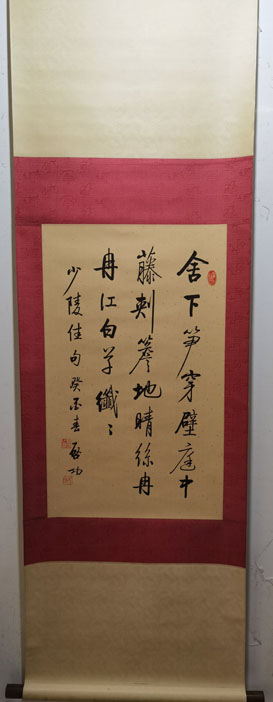 舍下笋穿壁庭中
藤刾簷地晴絲冉
冉江白草纖〻
少陵佳句癸酉春啟功